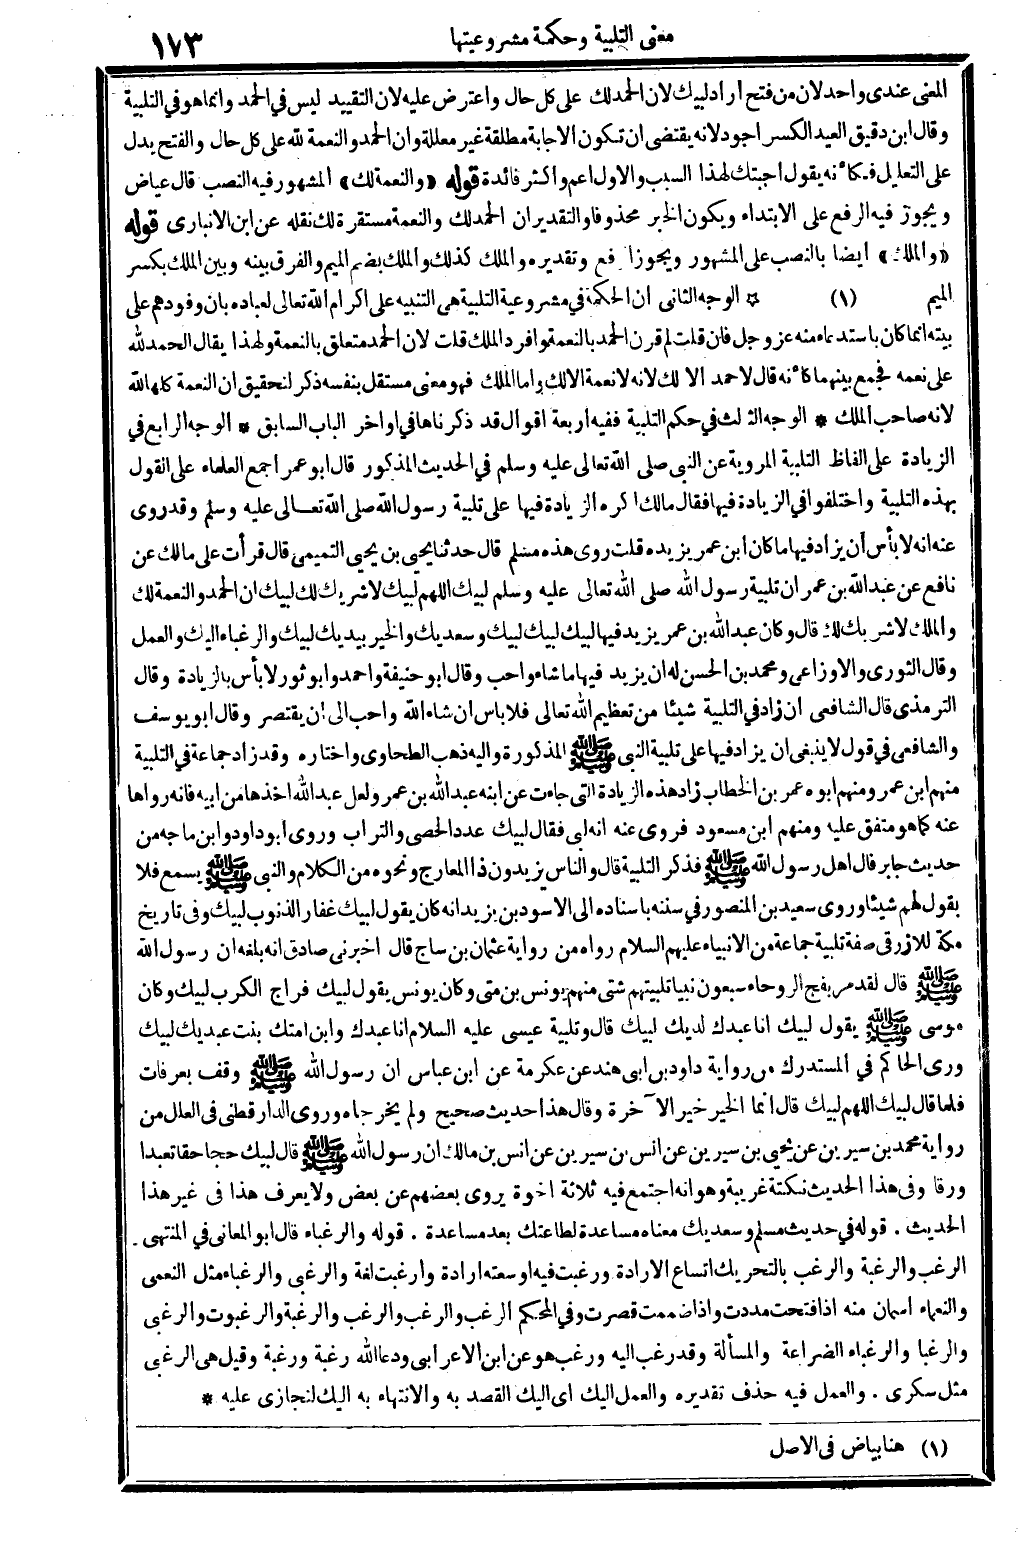 معنى التلبية وحكمة مشروعيتها
١٧٣
المعنى عندى واحد لان من فتح أراد لبيك لان الحمد لك على كل حال واعترض عليه لان التقييد ليس فى الحمد وانما هو فى التلبية
وقال ابن دقيق العيد الكسر اجود لانه يقتضى ان تكون الاجابة مطلقة غير معللة وان الحمد والنعمة لله على كل حال والفتح يدل
على التعليل فكأنه يقول اجبتك لهذا السبب والاول اعم واكثر فائدة قوله «والنعمة لك» المشهور فيه النصب قال عياض
ويجوز فيه الرفع على الابتداء ويكون الخبر محذوفا والتقدير ان الحمد لك والنعمة مستقرة لك نقله عن ابن الانبارى قوله
«والملك» أيضا بالنصب على المشهور ويجوز الرفع وتقديره والملك كذلك والملك بضم الميم والفرق بينه وبين الملك بكسر
الميم (١) ☆ الوجه الثانى ان الحكمة فى مشروعية التلبية هى التنبيه على اكرام الله تعالى لعباده بان وفودهم على
بيته انما كان باستدعاء منه عز وجل فان قلت لم قرن الحمد بالنعمة وافرد الملك قلت لان الحمد متعلق بالنعمة ولهذا يقال الحمد لله
على نعمه فجمع بينهما كأنه قال لا حمد الا لك لانه لا نعمة الا لك واما الملك فهو معنى مستقل بنفسه ذكر لتحقيق ان النعمة كلها لله
لانه صاحب الملك * الوجه الثالث فى حكم التلبية ففيه اربعة اقوال قد ذكرناها فى اواخر الباب السابق * الوجه الرابع فى
الزيادة على الفاظ التلبية المروية عن النبى صلى الله تعالى عليه وسلم في الحديث المذكور قال ابو عمر اجمع العلماء على القول
بهذه التلبية واختلفوا فى الزيادة فيها فقال مالك اكره الزيادة فيها على تلبية رسول الله صلى الله تعالى عليه وسلم وقد روى
عنه انه لا بأس أن يزاد فيها ما كان ابن عمر يزيده قلت روى هذه مسلم قال حدثنا يحيى بن يحيى التميمى قال قرأت على مالك عن
نافع عن عبد الله بن عمر ان تلبية رسول الله صلى الله تعالى عليه وسلم لبيك اللهم لبيك لا شريك لك لبيك ان الحمد والنعمة لك
والملك لا شريك لك قال وكان عبد الله بن عمر يزيد فيها لبيك لبيك لبيك وسعديك والخير بيديك لبيك والرغباء اليك والعمل
وقال الثورى والاوزاعى ومحمد بن الحسن له ان يزيد فيها ما شاء واحب وقال ابو حنيفة واحمد وابو ثور لا بأس بالزيادة وقال
الترمذى قال الشافعى ان زاد فى التلبية شيئا من تعظيم الله تعالى فلا بأس ان شاء الله واحب الى أن يقتصر وقال ابو يوسف
والشافعى فى قول لا ينبغى ان يزاد فيها على تلبية النبى ﷺ المذكورة واليه ذهب الطحاوى واختاره وقد زاد جماعة فى التلبية
منهم ابن عمر ومنهم ابوه عمر بن الخطاب زاد هذه الزيادة التى جاءت عن ابنه عبد الله بن عمر ولعل عبد الله اخذها من ابيه فانه رواها
عنه كما هو متفق عليه ومنهم ابن مسعود فروى عنه انه لبى فقال لبيك عدد الحصى والتراب وروى ابو داود وابن ماجه من
حديث جابر قال اهل رسول الله ﷺ فذكر التلبية قال والناس يزيدون ذا المعارج ونحوه من الكلام والنبى ﷺ يسمع فلا
يقول لهم شيئا وروى سعيد بن المنصور فى سننه باسناده الى الاسود بن يزيد انه كان يقول لبيك غفار الذنوب لبيك وفى تاريخ
مكة للازرقى صفة تلبية جماعة من الانبياء عليهم السلام رواه من رواية عثمان بن ساج قال اخبرنى صادق انه بلغه ان رسول الله
ﷺ قال لقد مر بفج الروحاء سبعون نبيا تلبيتهم شتى منهم يونس بن متى وكان يونس يقول لبيك فراج الكرب لبيك وكان
موسى ﷺ يقول لبيك انا عبدك لديك لبيك قال وتلبية عيسى عليه السلام انا عبدك وابن امتك بنت عبديك لبيك
ورى الحاكم في المستدرك من رواية داود بن ابى هند عن عكرمة عن ابن عباس ان رسول الله ﷺ وقف بعرفات
فلما قال لبيك اللهم لبيك قال انما الخير خير الآخرة وقال هذا حديث صحيح ولم يخرجاه وروى الدارقطنى فى العلل من
رواية محمد بن سيرين عن يحيى بن سيرين عن انس بن سيرين عن انس بن مالك ان رسول الله ﷺ قال لبيك حجا حقا تعبدا
ورقا وفى هذا الحديث نكتة غريبة وهو انه اجتمع فيه ثلاثة اخوة يروى بعضهم عن بعض ولا يعرف هذا فى غير هذا
الحديث . قوله فى حديث مسلم وسعديك معناه مساعدة لطاعتك بعد مساعدة . قوله والرغباء قال ابو المعانى في المنتهى .
الرغب والرغبة والرغب بالتحريك اتساع الارادة ورغبت فيه اوسعته ارادة وأرغبت لغة والرغبى والرغباء مثل النعمى
والنعماء اسمان منه اذا فتحت مددت واذا ضممت قصرت وفي المحكم الرغب والرغب والرغب والرغبة والرغبوت والرغبى
والرغبا والرغباء الضراعة والمسألة وقد رغب اليه ورغب هو عن ابن الاعرابى ودعا الله رغبة ورغبة وقيل هى الرغبى
مثل سكرى . والعمل فيه حذف تقديره والعمل اليك اى اليك القصد به والانتهاء به اليك لتجازى عليه *
(١) هنا بياض فى الاصل